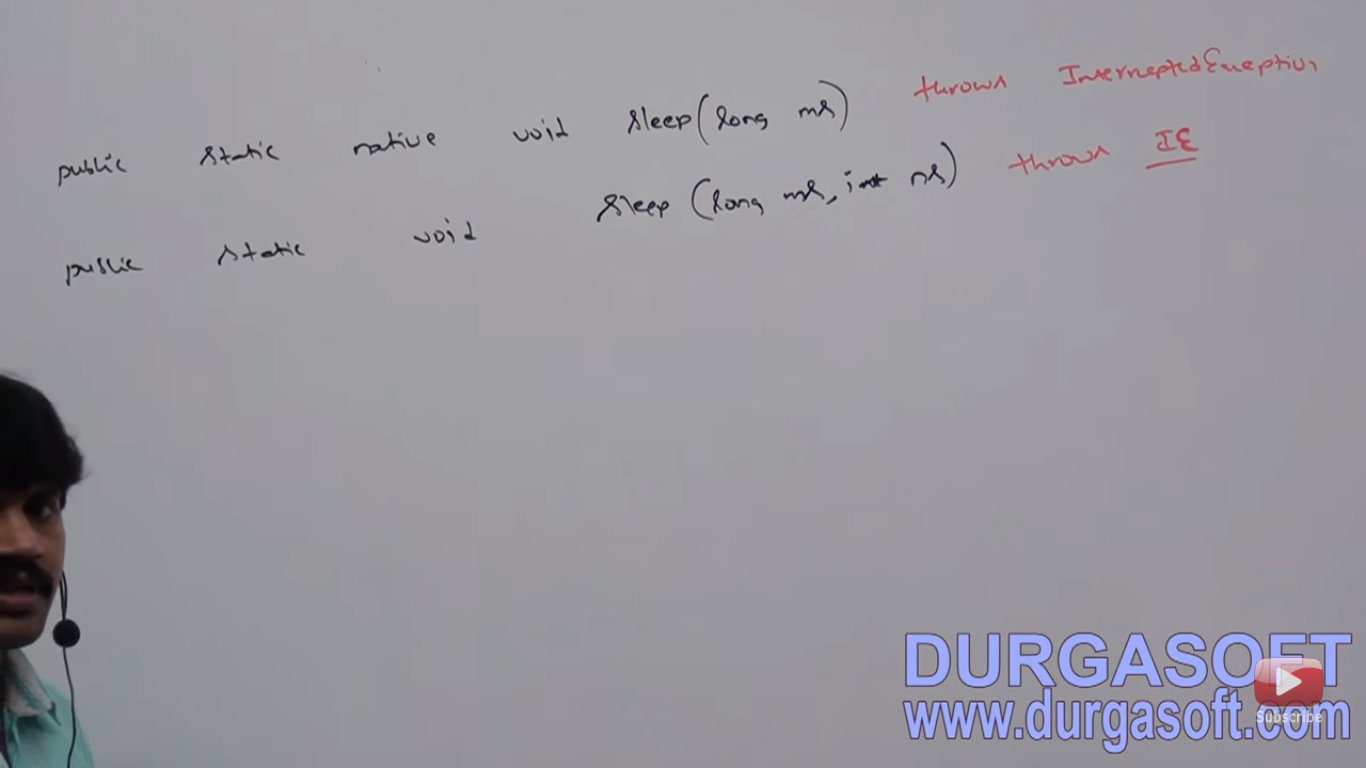 public static native void sleep(long ms) throws InterruptedException
public static void sleep (long ms, int ns) throws IE
DURGASOFT
www.durgasoft.com
Subscribe